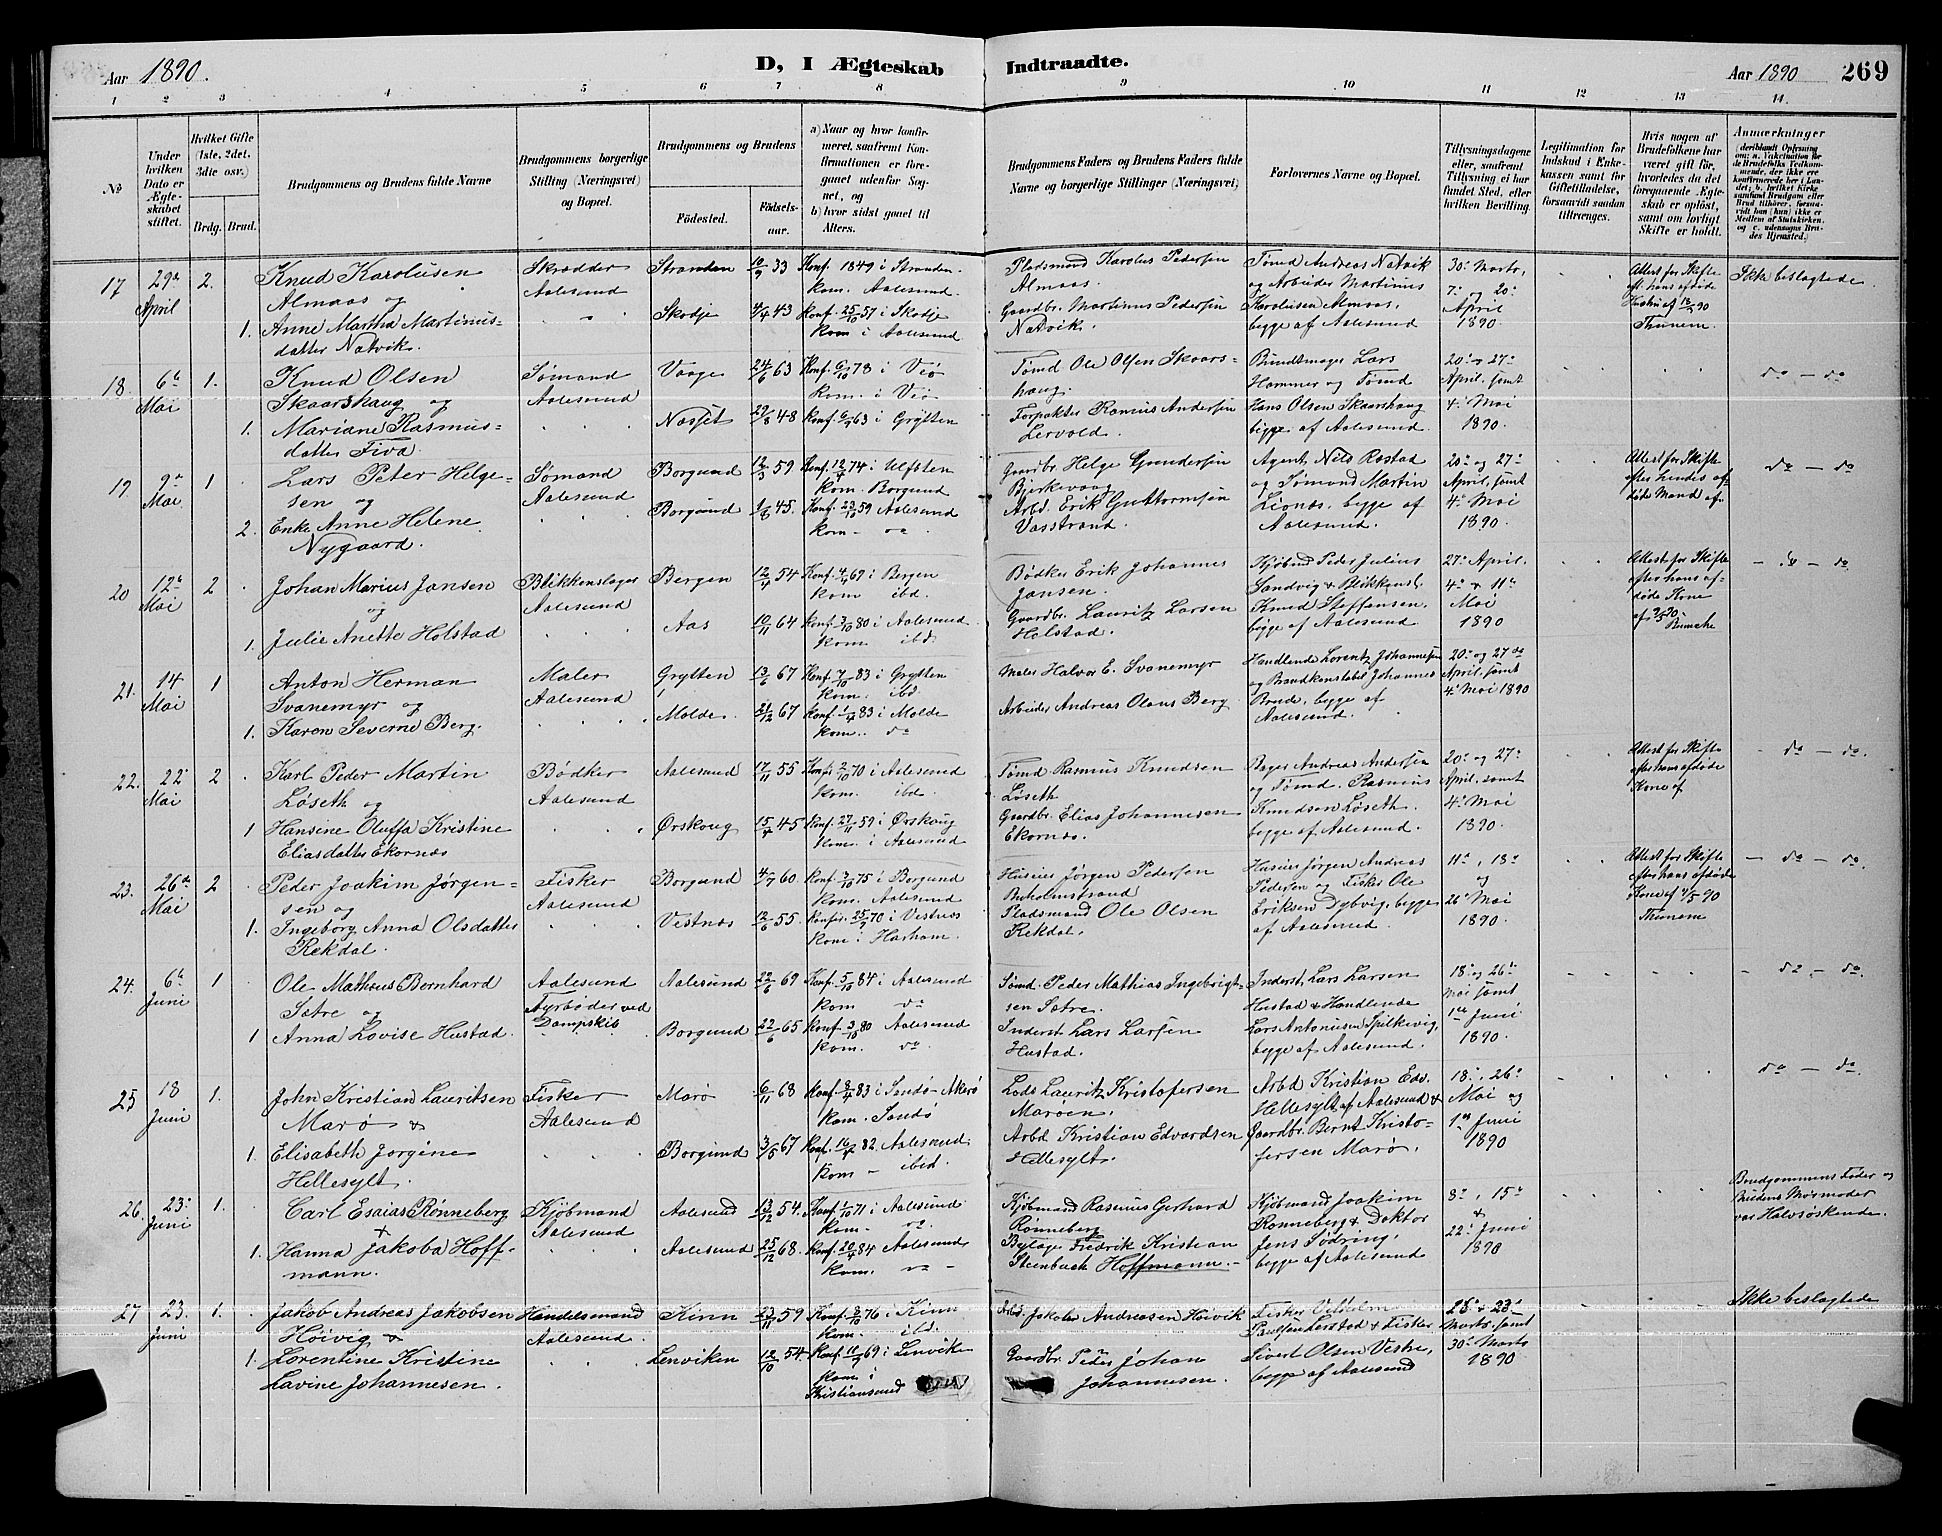 Aar 1890.
D, I Ægteskab Indtraadte.
Aar 1890 269
1 2 3 4 5 6 7 8 9 10 11 12 13 14.
No
Under hvilken Dato er Ægteskabet stiftet.
Hvilket Gifte (1ste, 2det, 3die osv.)
Brdg. Brud.
Brudgommens og Brudens fulde Navne
Brudgommens borgerlige Stilling (Næringsvei) og Bopæl.
Brudgommens og Brudens
Fødested.
Fødsels-aar.
a) Naar og hvor konfirmeret, saafremt Konfirmationen er foregaaet udenfor Sognet, og
b) hvor sidst gaaet til Alters.
Brudgommens Faders og Brudens Faders fulde Navne og borgerlige Stillinger (Næringsvei)
Forlovernes Navne og Bopæl.
Tillysningsdagene eller, saafremt Tillysning ei har fundet Sted, efter hvilken Bevilling
Legitimation for Indskud i Enkekassen samt for Giftetilladelse, forsaavidt saadan tiltrænges.
Hvis nogen af Brudefolkene har været gift før, hvorledes da det foregaaende Ægteskab er opløst, samt om lovligt Skifte er holdt.
Anmærkninger
17 29de April 2. Knud Karolusen Almaas og
Skrædder Aalesund
Stranden 10/9 33 Konf. 1849 i Stranden kom. Aalesund.
Pladsmand Karolus Pedersen Almaas.
1. Anne Martha Martinusdatter Natvik.
Skodje 4/4 43 Konf. 25/10 57 i Skodje Kom i Aalesund
Gaardbr. Martinus Pedersen Natvik.
Tømd Andreas Natvik og Arbeider Martinus Karolusen Almaas, begge af Aalesund
30. Marts, 7. og 20. April 1890.
Attest for Skifte eft. hans afdøde Hustru Thunem.
Ikke beslægtede.
18. 6te Mai 1. Knud Olsen Skaarshaug og
Sømand Aalesund
Vaage 24/6 63 Konf. 6/10 78 i Veø kom. i Veø
Tømd Ole Olsen Skaarshaug.
1. Mariane Rasmusdatter Fiva.
Nesset 29/8 48 Konf. 63 i Grytten
Forpakter Rasmus Andersen Lervold.
Bundtmager Lars Hammer og Tømd Hans Olsen Skaarshaug begge af Aalesund.
20. og 27. April, samt 4. Mai 1890.
do – do
19. 9de Mai 1 Lars Peter Helgesen og
Sømand Aalesund
Borgund 12/3 59 Konf. 74 i Ulfsten kom. Borgund
Gaardbr. Helge Gundersen Bjerkevaag
2. Enke Anne Helene Nygaard.
Borgund 45. Konf. 59 Aalesund kom – do
Arbd. Erik Guttormsen Vasstrand.
Agent Nils Rostad og Sømand Martin Lionæs, begge af Aalesund.
20. og 27. April, samt 4. Mai 1890.
Attest for Skifte efter hendes afdøde Mand af
do – do
20 12te Mai 2 Johan Marius Jansen og
Blikkenslager Aalesund
Bergen 12/4 54 Konf. 69 i Bergen kom ibd.
Bødker Erik Johannes Jansen.
1. Julie Anette Holstad
Aas 10/11 64 Konf. 3/10 80 i Aalesund kom ibd.
Gaardbr. Lauritz Larsen Holstad.
Kjøbmd Peder Julius Sandvig & Blikkensl. Knud Steffensen, begge af Aalesund
27. April. 4. & 11. Mai 1890
Attest for Skifte efter hans afdøde Kone
– do – do
21. 14 Mai 1 Anton Herman Svanemyr og
Maler Aalesund
Grytten 13/6 67 Konf. 7/10 83 i Grytten kom. ibd.
Maler Halvor E. Svanemyr
1. Karen Severine Berg.
Molde. 21/12 67 Konf. 83 i Molde kom. do
Arbeider Andreas Olaus Berg
Handlende Lorentz Johannesen og Brandkonstabel Johannes Brude, begge af Aalesund.
20. og 27de April, samt 4. Mai 1890
22. 22 Mai 2 Karl Peder Martin Løseth og
Bødker Aalesund
Aalesund 17/11 55 Konf. 2/10 70 i Aalesund kom. ibd.
Tømd Rasmus Knudsen Løseth
1 Hansine Oluffa Kristine Eliasdatter Ekornæs
Ørskoug 15/4 45 Konf. 27/11 59 i Ørskoug kom. i Aalesund
Gaardbr. Elias Johannesen Ekornæs.
Bager Andreas Andersen og Tømd. Rasmus Knudsen Løseth. begge af Aalesund.
20. og 27. April, samt 4. Mai 1890.
Attest for Skifte efter hans afdøde Kone af
– do – do.
23. 26de Mai 2 Peder Joakim Jørgensen og
Fisker Aalesund
Borgund 4/7 60 Konf. 3/10 75 i Borgund kom. Aalesund
Husm Jørgen Pedersen Buholmstrand
1. Ingeborg Anna Olsdatter Rekdal.
Vestnæs 12/6 55. Konf. 70 i Vestnæs kom i Harham.
Pladsmand Ole Olsen Rekdal.
Husm Jørgen Andreas Pedersen og Fisker Ole Eriksen Dybvig, begge af Aalesund.
11., 18. og 26. Mai 1890.
Attest for Skifte efter hans afdøde Kone af 4/5 90 Thunem
– do – do.
24. 6te Juni 1 Ole Matheus Bernhard Sætre og
Aalesund Fyrbøder ved Dampskib
Aalesund 22/6 69 Konf. 5/10 84 i Aalesund kom do
Sømd. Peder Mathias Ingebrigtsen Sætre.
1 Anna Lovise Hustad.
Borgund 22/6 65 Konf. 3/10 80 Aalesund kom. do
Inderst Lars Larsen Hustad.
Inderst Lars Larsen Hustad & Handlende Lars Antoniusen Spilkevig, begge af Aalesund.
18. og 26. Mai samt 1ste Juni 1890.
– do. – do.
25 18 Juni 1. John Kristian Lauritsen Marø &
Fisker Aalesund
Marø 6/11 68 Konf. 8/4 83 i Sandø Akerø kom. Sandø
Lods Lauritz Kristofersen Marøen.
1. Elisabeth Jorgine Hellesylt.
Borgund 67 Konf. 16/4 82. Aalesund. kom – ibid.
Arbd Kristian Edvardsen Hellesylt.
Arbd Kristian Edv. Hellesylt af Aalesund & Gaardbr. Bernt Kristofersen Marø.
18., 26. Mai og 1ste Juni 1890
do – do.
26. 23. Juni 1. Carl Esaias Rønneberg &
Kjøbmand Aalesund
Aalesund 13/12 54. Konf. 1/10 71 i Aalesund kom – do.
Kjøbmand Rasmus Gerhard Rønneberg
1. Hanna Jakoba Hoffmann.
Aalesund 25/12 68. Konf. 20/4 84 Aalesund kom. do –
Byfoged Fredrik Kristian Steenbuch Hoffmann. –
Kjøbmand Joakim Rønneberg & Doktor Jens Sødring, begge af Aalesund
8., 15. & 22. Juni 1890
Brudgommens Fader og Brudens Mormoder var Halvsøskende.
27 23. Juni 1. Jakob Andreas Jakobsen Høivig &
Handelsmand Aalesund.
Kinn 23/11 59 Konf. 76 i Kinn kom. ibd.
Arbd. Jakob Andreasen Høivik
1. Lorentine Kristine Lavine Johannesen.
Lenviken 12/10 54. Konf. 69 i Lenvik kom i Kristiansund
Gaardbr. Peder Johan Johannesen.
Fisker Vilhelm Paulsen Lerstad & Fisker Sivert Olsen Vestre, begge af Aalesund
25. & 23. Marts, samt 30. Marts 1890
Ikke beslægtede